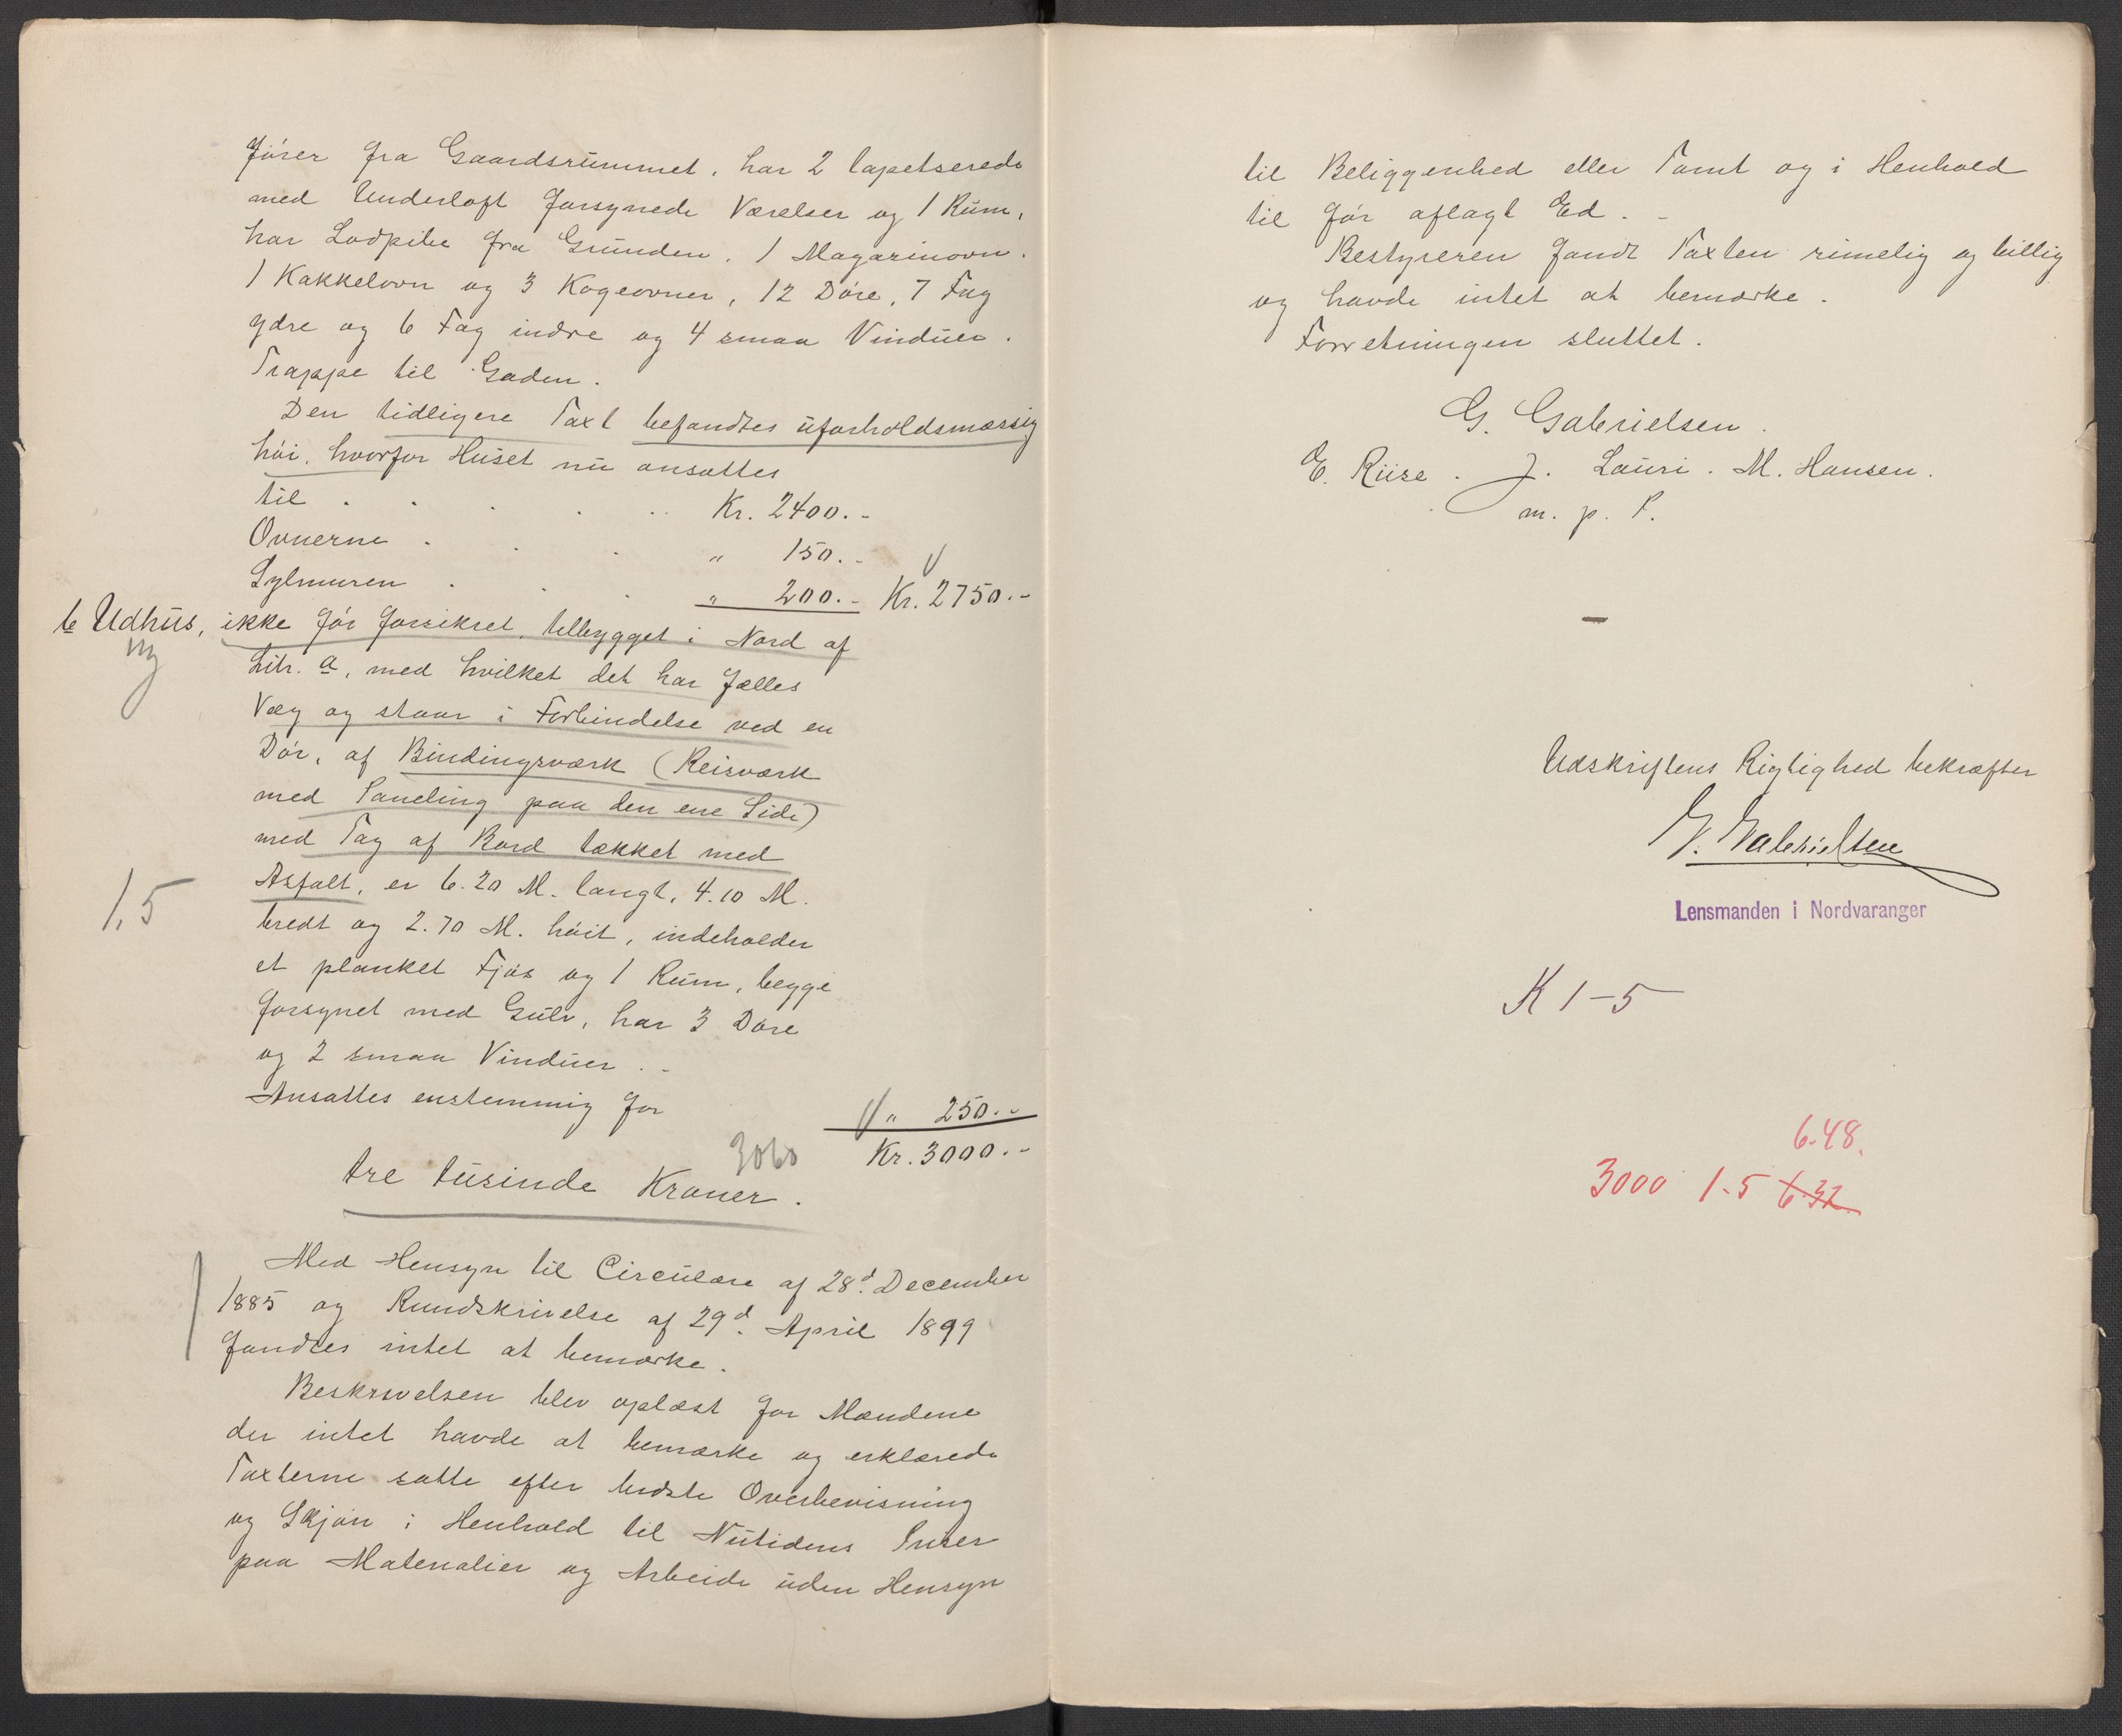 fører fra Gaardsrummet, har 2 tapetserede
med Underloft forsynede Værelser og 1 Rum,
har Lodpibe fra Grunden, 1 Magasinovn.
1 Kakkelovn og 3 Kogeovner, 12 Døre, 7 Fag
ydre og 6 Fag indre og 4 smaa Vinduer.
Trappe til Gaden.
Den tidligere Taxt befandtes uforholdsmæssig
høi, hvorfor Huset nu ansattes
til . . . . . Kr. 2400.-
Ovnerne . . . " 150.-
Sylmuren . . . " 200.- Kr. 2750.-
b Udhus, ikke før forsikret, tilbygget i Nord af
ny
Litr. a, med hvilket det har fælles
Væg og staar i Forbindelse ved en
Dør, af Bindingsværk (Reisværk
med Paneling paa den ene Side)
med Tag af Bord tækket med
Asfalt, er 6.20 M. langt, 4.10 M.
1.5
bredt og 2.70 M. høit, indeholder
et planket Fjøs og 1 Rum, begge
forsynet med Gulv, har 3 Døre
og 2 smaa Vinduer . -
Ansattes enstemmig for
" 250.-
3060 Kr. 3000.-
tre tusinde Kroner.
Med Hensyn til Circulære af 28d. December
1885 og Rundskrivelse af 29d. April 1899
fandtes intet at bemærke.
Beskrivelsen blev oplæst for Mændene
der intet havde at bemærke og erklærede
Taxterne satte efter bedste Overbevisning
og Skjøn i Henhold til Nutidens Priser
paa Materialier og Arbeide uden Hensyn
til Beliggenhed eller Tomt og i Henhold
til før aflagt Ed. -
Bestyreren fandt Taxten rimelig og billig
og havde intet at bemærke.
Forretningen sluttet.
G. Gabrielsen.
E. Riise. J. Lauri. M. Hansen.
m. p. P.
Udskriftens Rigtighed bekræfter
G. Gabrielsen
Lensmanden i Nordvaranger
K 1-5
6.48.
3000 1.5 6.32